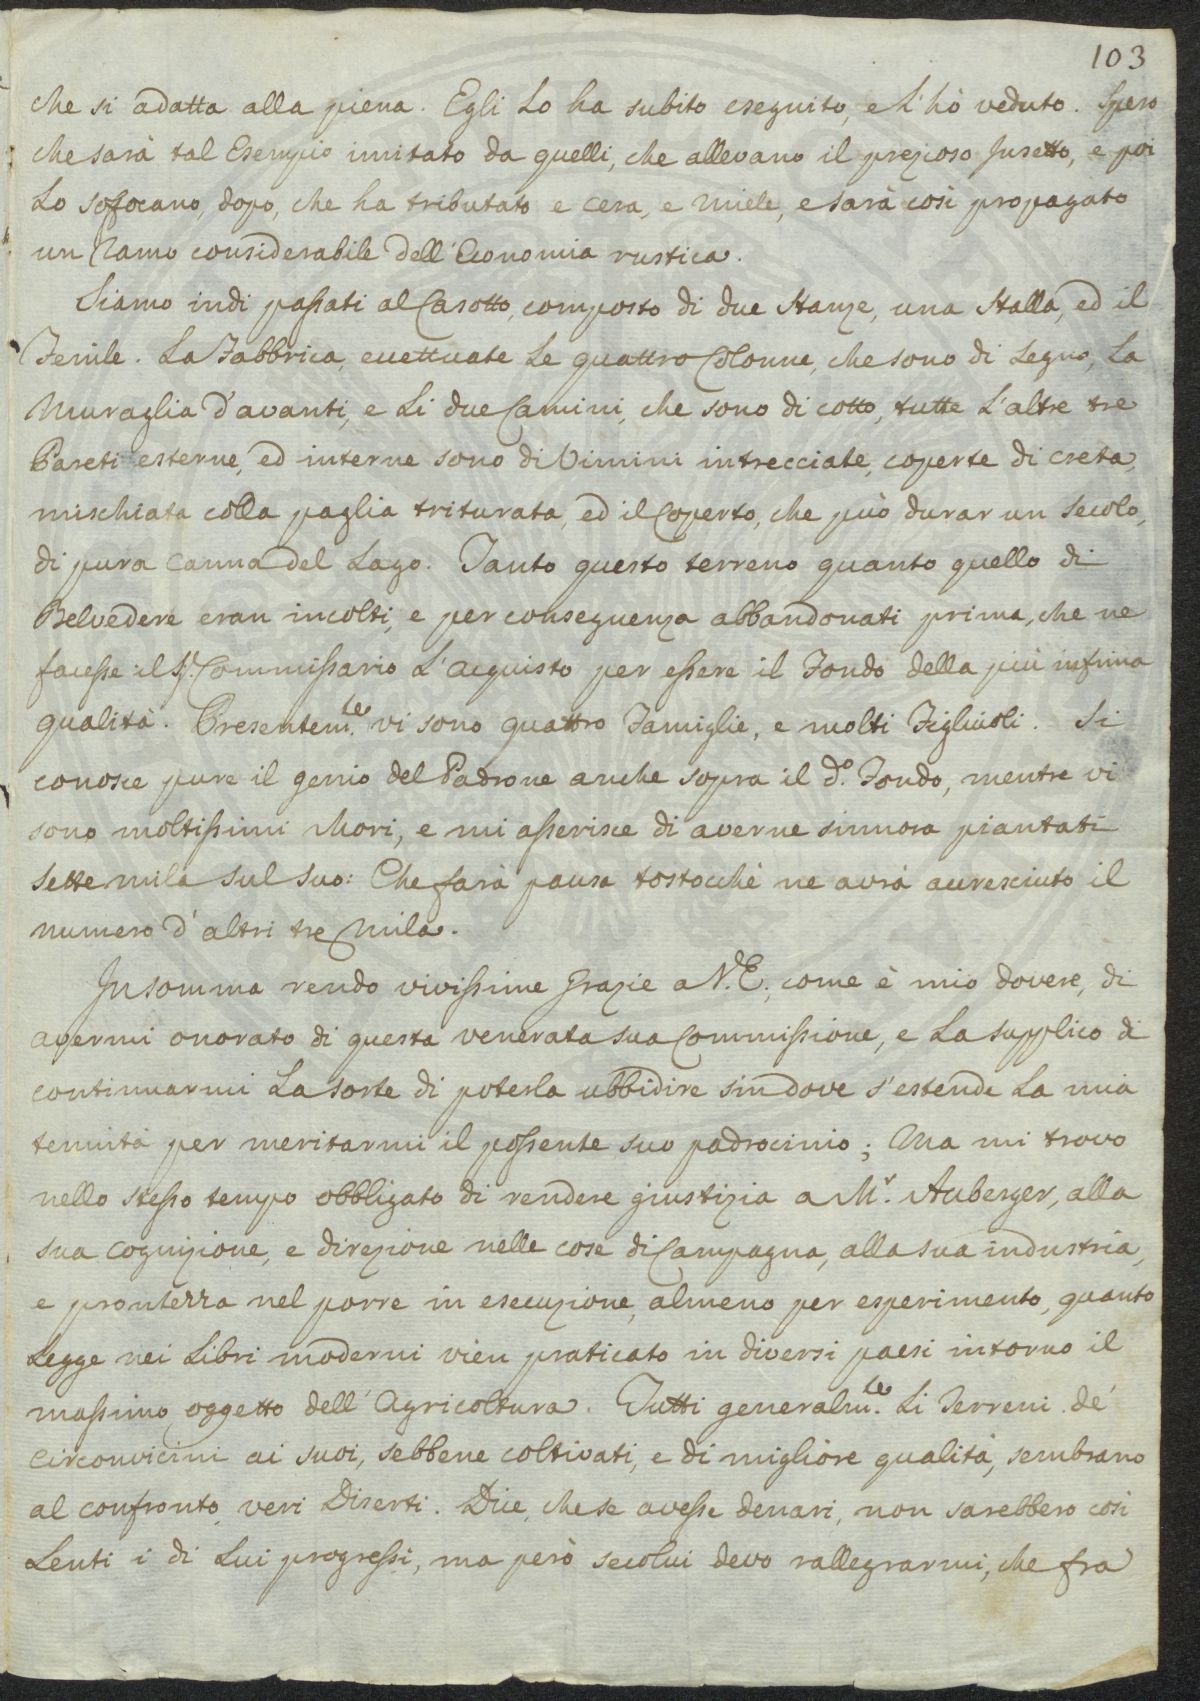 103
che si adatta alla piena. Egli Lo ha subito eseguito, e L'hò veduto. Spero
che sarà tal Esempio imitato da quelli, che allevano il prezioso Insetto, e poi
Lo sofocano, dopo, che ha tributato e cera, e miele, e sarà così propagato
un Ramo considerabile dell'Economia rustica.
Siamo indi passati al Casotto, composto di due Stanze, una Stalla, ed il
Fenile. La Fabbrica, eccettuate Le quattro Colonne, che sono di Legno, La
Muraglia d'avanti, e Li due Camini, che sono di cotto, tutte L'altre tre
Pareti esterne, ed interne sono di Vimini intrecciate, coperte di creta,
mischiata colla paglia triturata, ed il Coperto, che può durar un Secolo,
di pura Canna del Lago. Tanto questo terreno quanto quello di
Belvedere eran incolti, e per conseguenza abbandonati prima, che ne
facesse il Sr. Commissario L'acquisto per essere il Fondo della più infima
qualità. Presentemte. vi sono quattro Famiglie, e molti Figliuoli. Si
conosce pure il genio del Padrone anche sopra il do. Fondo, mentre vi
sono moltissimi Mori, e mi asserisce di averne sinnora piantati
Sette mila sul suo: Che farà pausa tostocchè ne avrà accresciuto il
numero d'altri tre Mila.
In somma rendo vivissime Grazie a V. E., come è mio dovere, di
avermi onorato di questa venerata sua Commissione, e La supplico di
continuarmi La sorte di poterla ubbidire sin dove s'estende La mia
tenuità per meritarmi il possente suo padrocinio; Ma mi trovo
nello stesso tempo obbligato di rendere giustizia a Mr. Auberger, alla
sua cognizione, e direzione nelle cose di Campagna, alla sua industria,
e prontezza nel porre in esecuzione, almeno per esperimento, quanto
Legge nei Libri moderni vien praticato in diversi paesi intorno il
massimo oggetto dell'Agricoltura. Tutti generalmte. Li Terreni de'
circonvicini ai suoi, sebbene coltivati, e di migliore qualità, sembrano
al confronto veri Diserti. Dice, che se avesse denari, non sarebbero così
Lenti i di Lui progressi, ma però secolui devo rallegrarmi, che fra